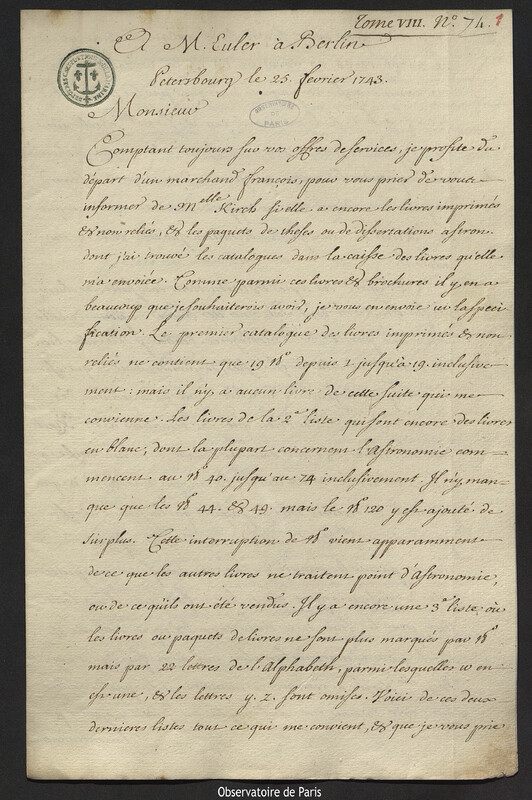 Tome VIII. N.º 74. 1
A M. Euler à Berlin
Petersbourg le 25. fevrier 1743.
OBSERVATOIRE DE PARIS
Monsieur
Comptant toujours sur vos offres de services, je profite du
départ d'un marchand françois, pour vous prier de vous
informer de Mlle Kirch si elle a encore les livres imprimés
& non reliés, & les paquets de theses ou de dissertations astron.
dont j'ai trouvé les catalogues dans la caisse des livres qu'elle
m'a envoiée. Comme parmi ces livres & brochures il y en a
beaucoup que je souhaiterois avoir, je vous en envoie ici la speci
fication. Le premier catalogue des livres imprimés & non
reliés ne contient que 19 Nº depuis 1 jusqu'à 19. inclusive
ment : mais il n'y a aucun livre de cette suite qui me
convienne. Les livres de la 2e liste qui sont encore des livres
en blanc, dont la plupart concernent l'Astronomie com-
mencent au Nº 40. jusqu'au 74 inclusivement. Il n'y man-
que que les Nº 44. & 49. mais le Nº 120 y est ajouté de
surplus. Cette interruption de Nº vient apparamment
de ce que les autres livres ne traitent point d'Astronomie,
ou de ce qu'ils ont été vendus. Il y a encore une 3e liste où
les livres ou paquets de livres ne sont plus marqués par Nº
mais par 22 lettres de l'Alphabeth, parmi lesquelles w en
est une, & les lettres y. z. sont omises. Voici de ces deux
dernieres listes tout ce qui me convient, & que je vous prie
Observatoire de Paris